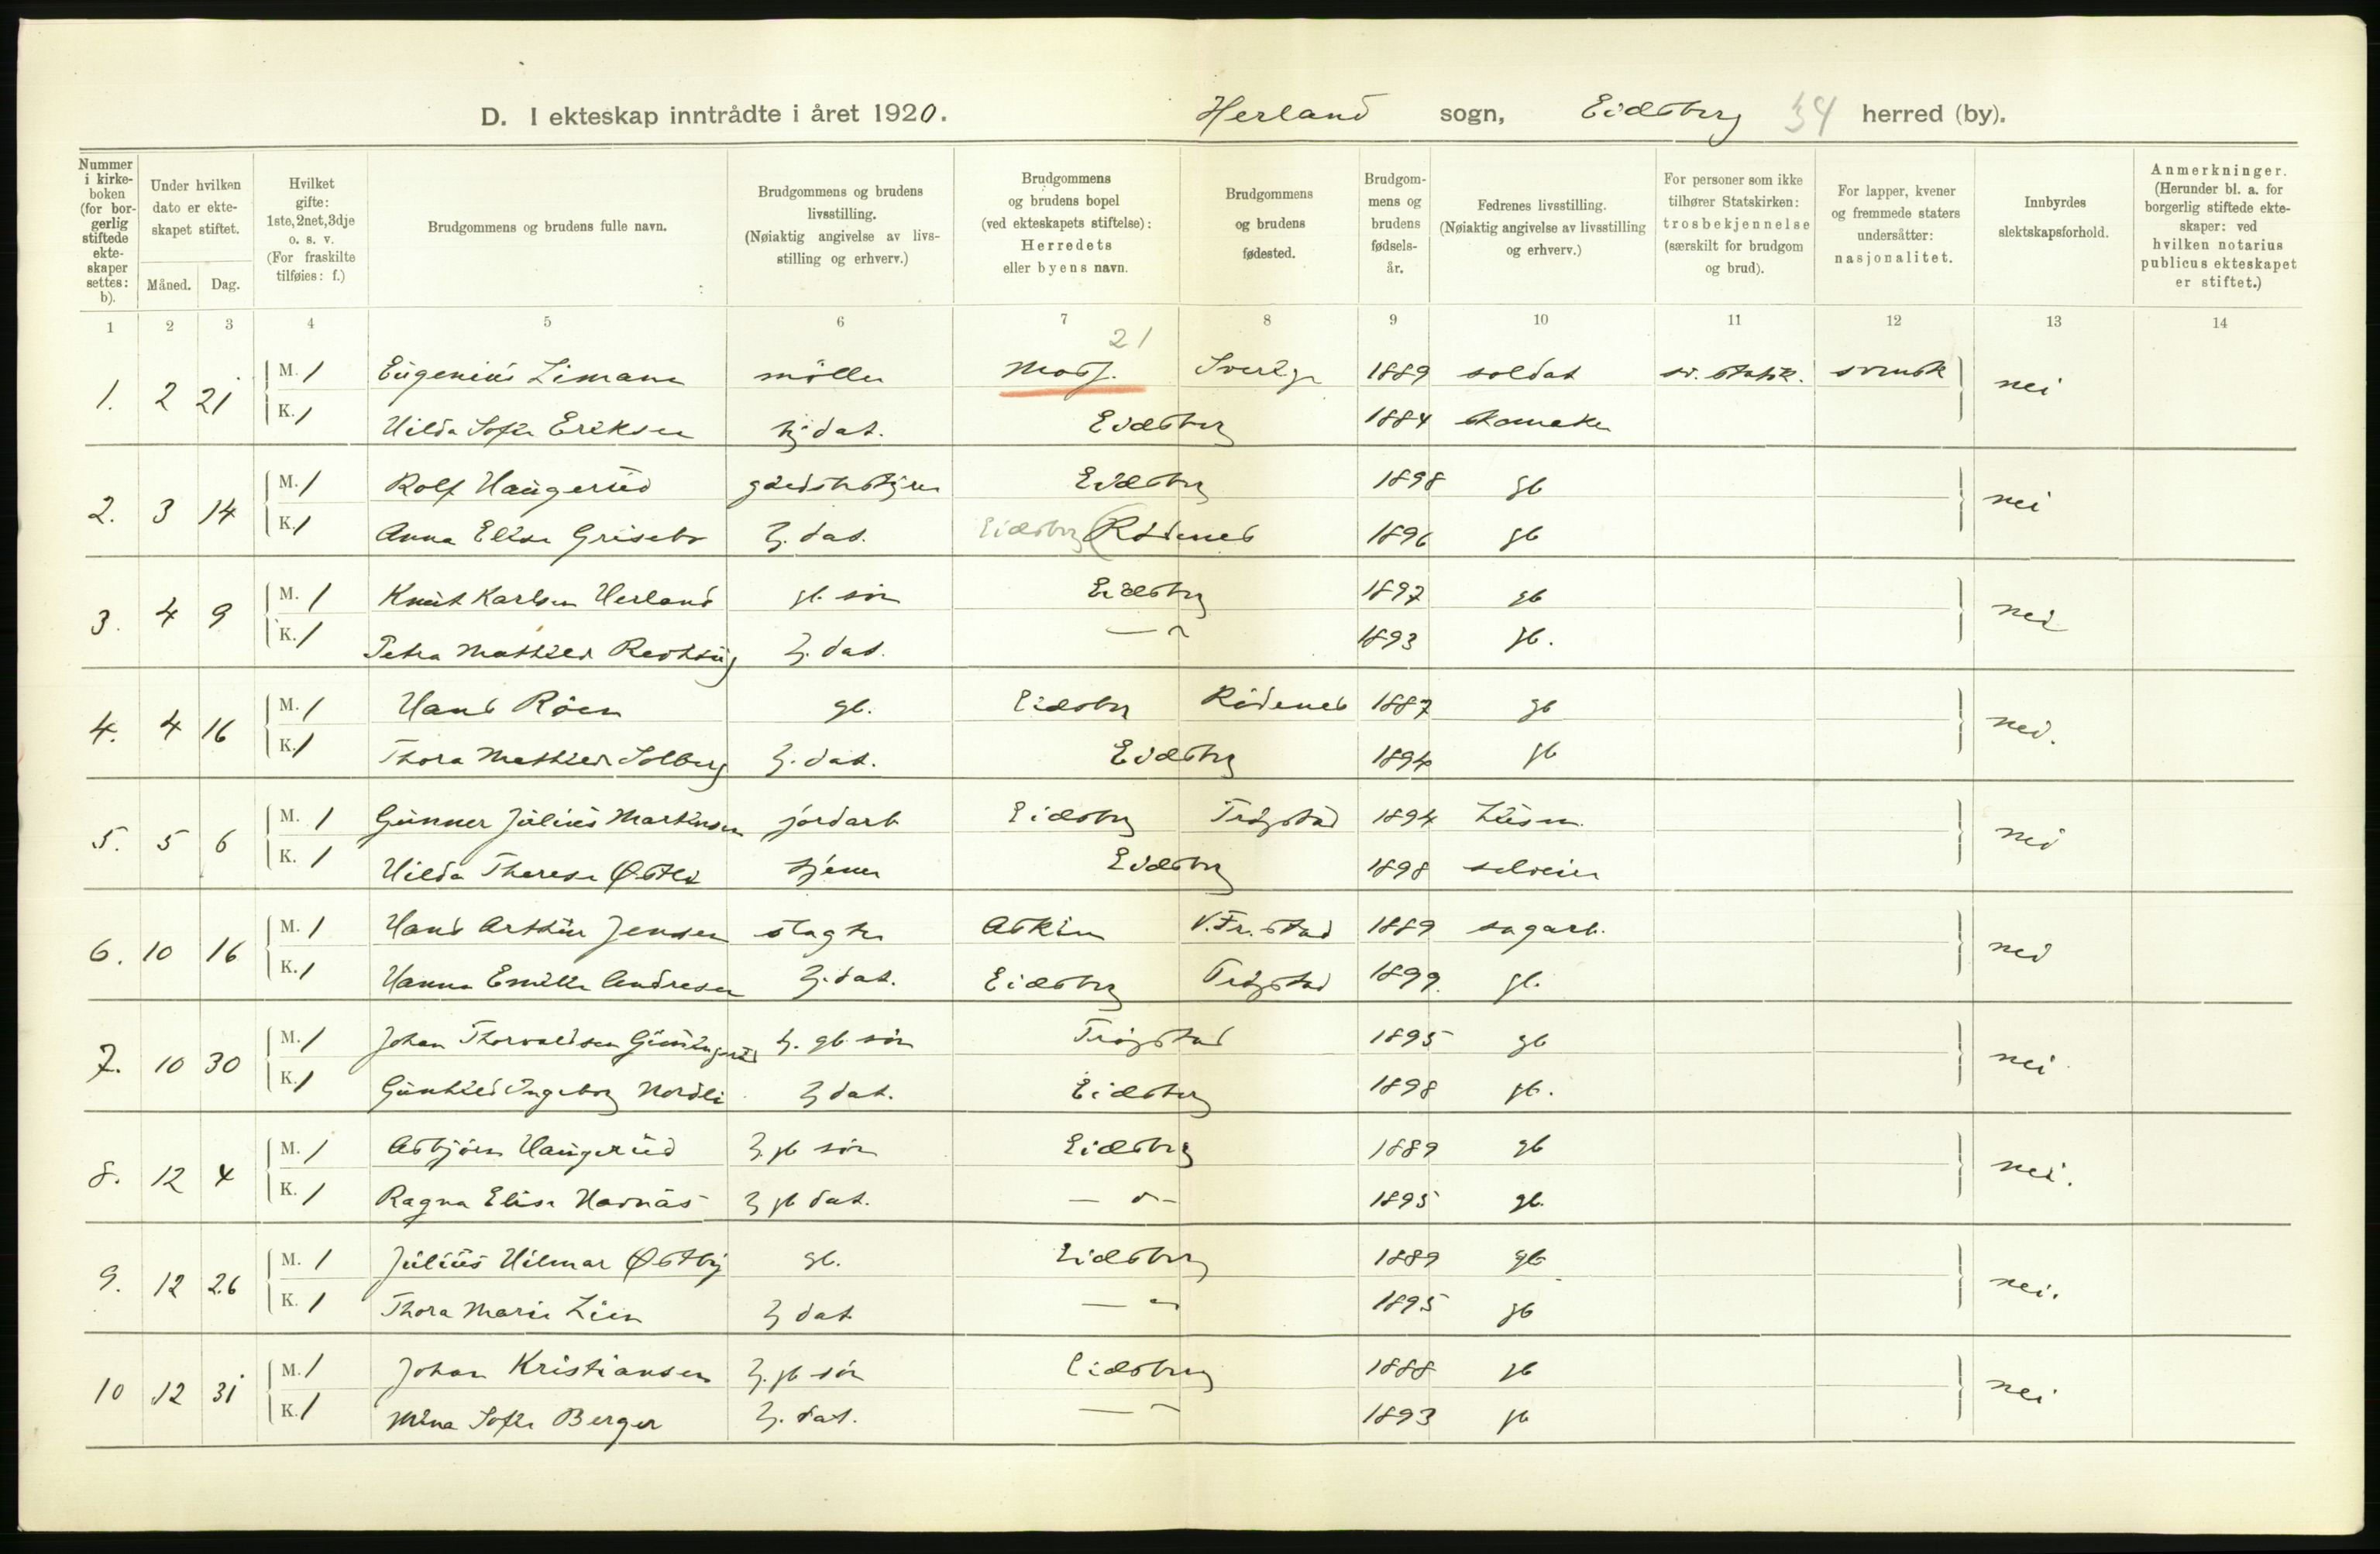 D. I ekteskap inntrådte i året 1920. Herland sogn, Eidsberg 34 herred (by).
Nummer i kirkeboken (for borgerlig stiftede ekteskaper settes: b).
Under hvilken dato er ekteskapet stiftet.
Måned. Dag.
Hvilket gifte: 1ste, 2net, 3dje o. s. v. (For fraskilte tilføies: f.)
Brudgommens og brudens fulle navn.
Brudgommens og brudens livsstilling. (Nøiaktig angivelse av livsstilling og erhverv.)
Brudgommens og brudens bopel (ved ekteskapets stiftelse): Herredets eller byens navn.
Brudgommens og brudens fødested.
Brudgommens og brudens fødselsår.
Fedrenes livsstilling. (Nøiaktig angivelse av livsstilling og erhverv.)
For personer som ikke tilhører Statskirken: trosbekjennelse (særskilt for brudgom og brud).
For lapper, kvener og fremmede staters undersåtter: nasjonalitet.
Innbyrdes slektskapsforhold.
Anmerkninger. (Herunder bl. a. for borgerlig stiftede ekteskaper: ved hvilken notarius publicus ekteskapet er stiftet.)
1 2 3 4 5 6 7 8 9 10 11 12 13 14
21
1. 2 21 M. 1 Eugenius Limann møller Moss. Sverige 1889 soldat sv. statsk. svensk nei
K. 1 Hilda Sofie Eriksen hj. dat. Eidsberg 1884 skomaker
2. 3 14 M. 1 Rolf Haugerud gårdsbestyrer Eidsberg 1898 gb nei
K. 1 Anna Elise Grisebo hj. dat. Eidsberg (Rödenes 1896 gb
3. 4 9 M. 1 Knut Karlsen Herland gb. søn Eidsberg 1897 gb nei
K. 1 Petra Mathilde hj. dat. — " 1893 gb.
4. 4 16 M. 1 Hans Röen gb. Eidsberg Rödenes 1887 gb nei.
K. 1 Thora Mathilde Solberg hj. dat. Eidsberg 1894 gb
5. 5 6 M. 1 Gunner Julius Martinsen jordarb Eidsberg Trögstad 1894 husm. nei
K. 1 Hilda Therese Østli tjener Eidsberg 1898 selveier
6. 10 16 M. 1 Hans Arthur Jensen slagter Askim V. Fr. stad 1889 sagarb. nei
K. 1 Hanna Emilie Andresen hj. dat. Eidsberg Trögstad 1899. gb.
7. 10 30 M. 1 Johan Thorvaldsen hj. gb. søn Trögstad 1895 gb nei
K. 1 Gunhild Ingeborg Nordli hj dat. Eidsberg 1898 gb.
8. 12 4 M. 1 Asbjörn Haugerud hj. gb søn Eidsberg 1889 gb nei.
K. 1 Ragna Elise Harnäs hj gb dat. — " — 1895 gb.
9. 12 26 M. 1 Julius Hilmar Østby gb. Eidsberg 1889 gb nei.
K. 1 Thora Marie Lien hj dat. — " 1895 gb
10 12 31 M. 1 Johan Kristiansen hj. gb søn Eidsberg 1888 gb nei
K. 1 Mina Sofie Berger hj. dat. — " 1893 gb